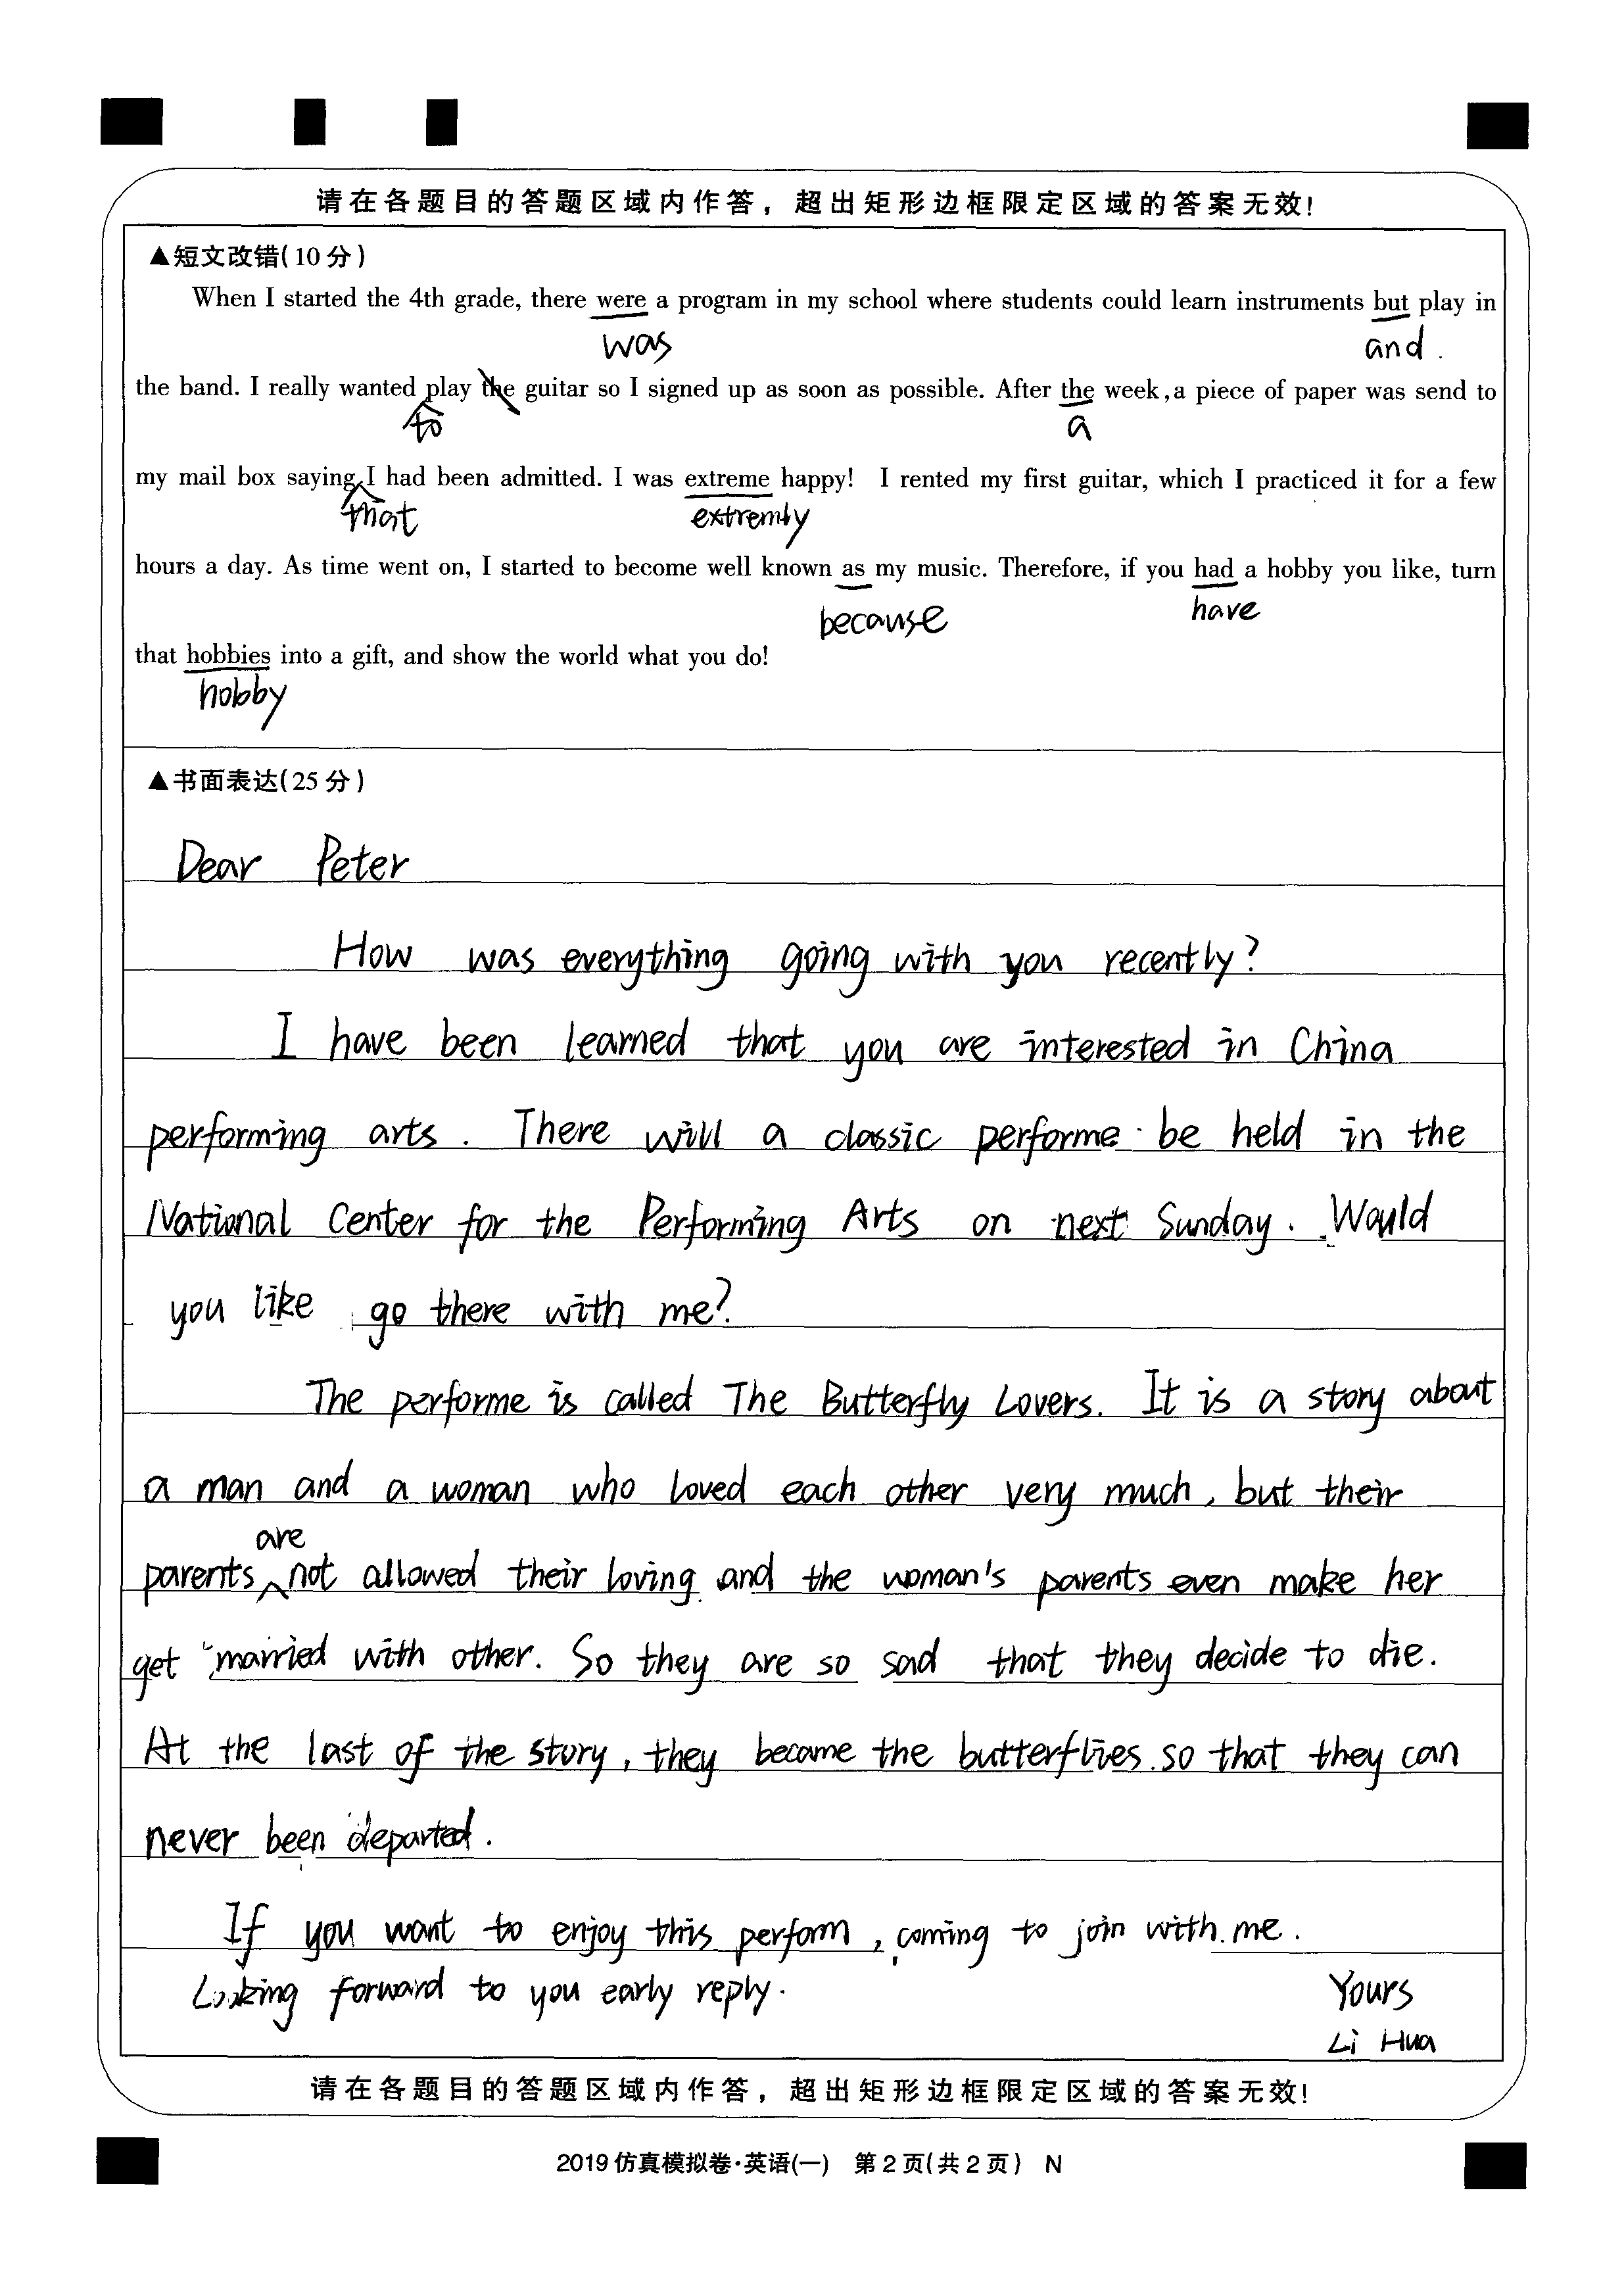 请在各题目的答题区域内作答，超出矩形边框限定区域的答案无效！
▲短文改错(10分)
When I started the 4th grade, there were a program in my school where students could learn instruments but play in
was and.
the band. I really wanted play the guitar so I signed up as soon as possible. After the week,a piece of paper was send to
to a
my mail box saying I had been admitted. I was extreme happy! I rented my first guitar, which I practiced it for a few
that extremly
hours a day. As time went on, I started to become well known as my music. Therefore, if you had a hobby you like, turn
because have
that hobbies into a gift, and show the world what you do!
hobby
▲书面表达(25分)
Dear Peter
How was everything going with you recently?
I have been learned that you are interested in China
performing arts. There will a classic performe be held in the
National Center for the Performing Arts on next Sunday. Would
you like go there with me?
The performe is called The Butterfly Lovers. It is a story about
a man and a woman who loved each other very much, but their
are
parents not allowed their loving and the woman's parents even make her
get married with other. So they are so sad that they decide to die.
At the last of the story, they became the butterflies so that they can
never been departed.
If you want to enjoy this perform, coming to join with me.
Looking forward to you early reply.
Yours
Li Hua
请在各题目的答题区域内作答，超出矩形边框限定区域的答案无效！
2019仿真模拟卷·英语(一) 第2页(共2页) N